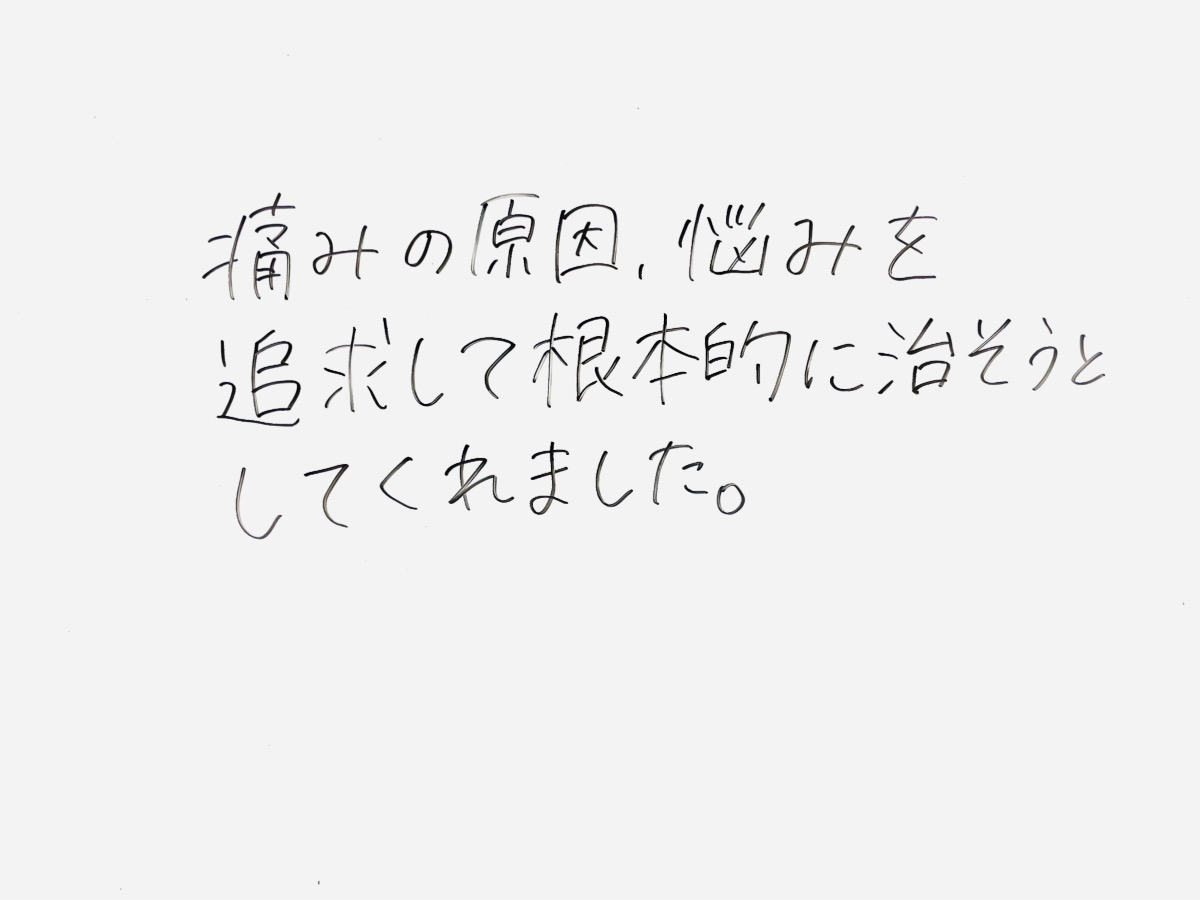 痛みの原因、悩みを
追求して根本的に治そうと
してくれました。